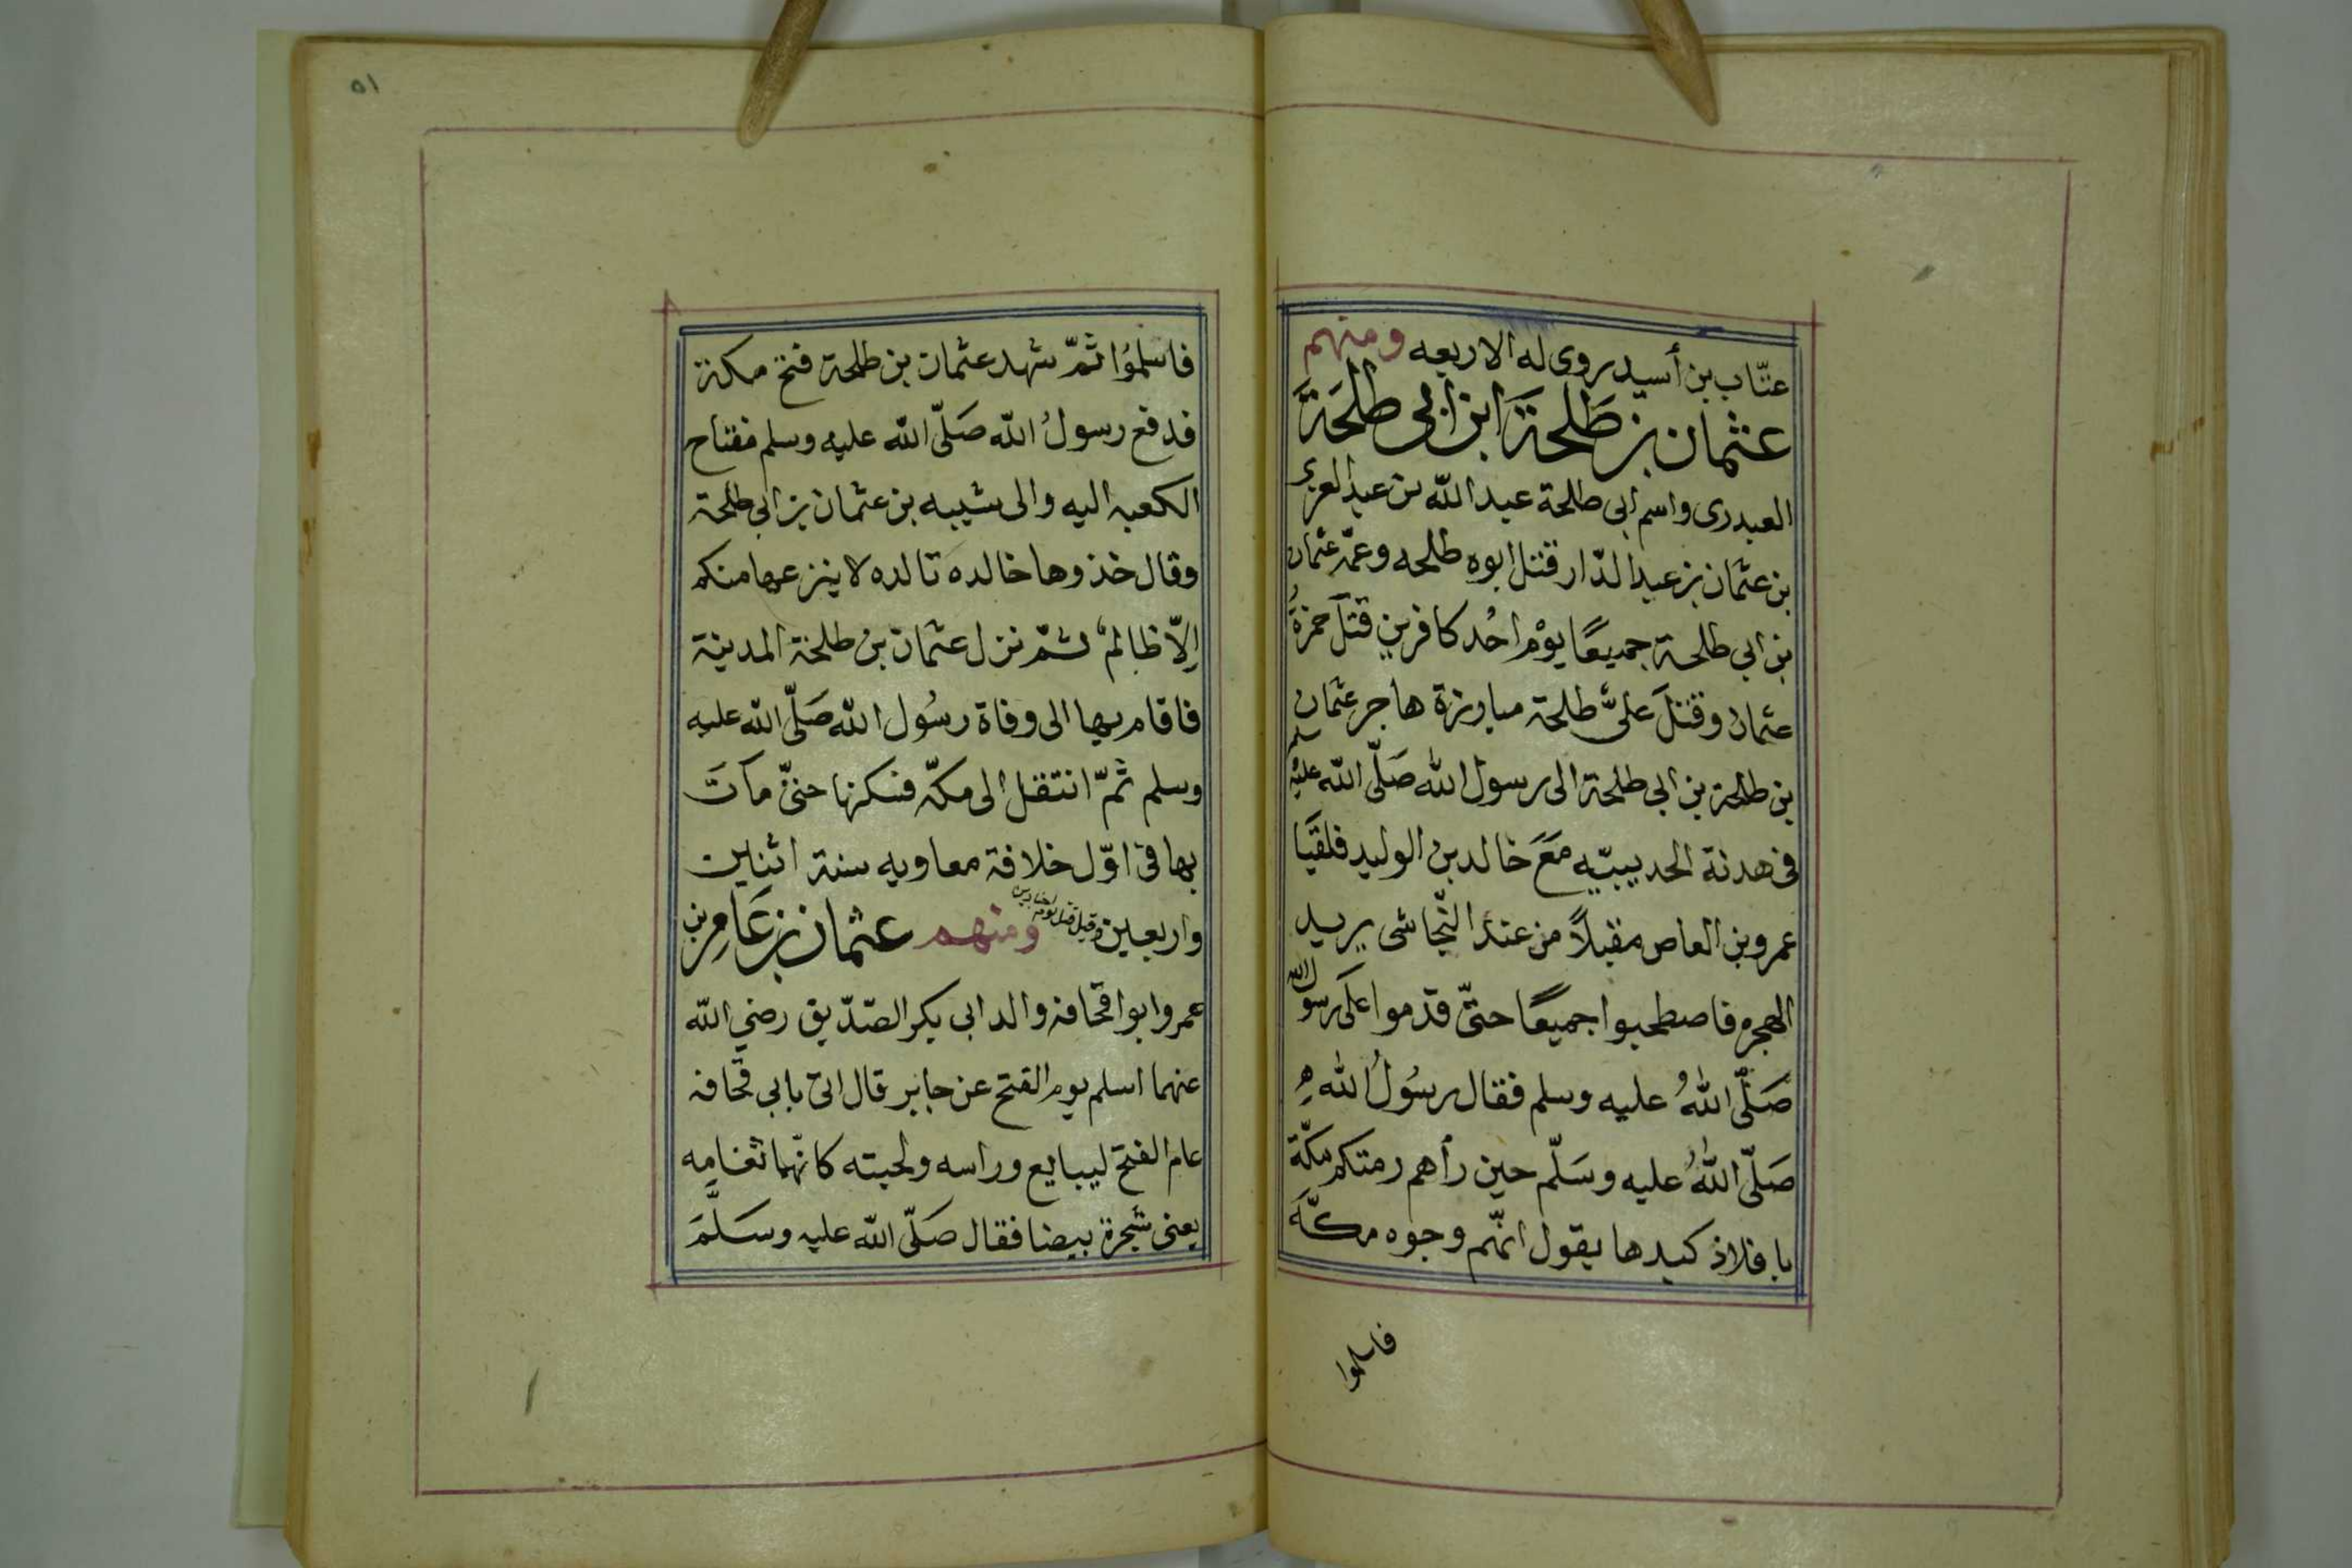 عتّاب بن أسيد يروى له الاربعه ومنهم
عثمان بن طَلحَةَ ابن ابي طلحَةَ
العبدرى واسم ابى طلحة عبد الله بن عبد العزى
بن عثمان بن عبد الدّار قتل ابوه طلحه وعمّه عثمان
بن ابي طلحة جميعًا يوْم احُد كافرين قتلَ حمزةُ
عثمان وقتلَ علىٌّ طلحة مبارزة هاجر عثمان
بن طلحة بن ابي طلحة الى رسول الله صَلّى الله عليْه سلم
فى هدنة الحديبيّه مَعَ خالد بن الوليد فلقيَا
عمرو بن العاص مقبلاً من عند النّجاشى يريد
الهجره فاصطحبوا جميعًا حتىّ قدموا علَى رسول الله
صَلّى اللهُ عليه وسلم فقال رسُولُ الله
صَلّى اللهُ عليه وسَلّم حين رأهم رمتكم مكّة
بافلاذ كبدها يقول انّهم وجوه مكّة
فاسلموا
٥١
فاسلموُا ثمّ شهد عثمان بن طلحة فتح مكة
فدفع رسولُ الله صَلّى الله عليه وسلم مفتاح
الكعبه اليه والى شيبه بن عثمان بن ابي طلحة
وقال خذوها خالده تالده لا ينزعها منكم
إلاّ ظالم ثمّ نزل عثمان بن طلحة المدينة
فاقام بها الى وفاة رسُول الله صَلّى الله عليه
وسلم ثمّ انتقل الى مكّه فسكنها حتىّ ماتَ
بها فى اوّل خلافة معاويه سنة اثنين
واربعين وقيل قتل يوم اجنادين ومنهم عثمان بن عَامِر بن
عمرو ابو قحافه والد ابى بكر الصّدّيق رضي الله
عنهما اسلم يوم الفتح عن جابر قال اتى بابي قحافه
عام الفتح ليبايع وراسه ولحيته كانّها ثغامه
يعنى شجرة بيضا فقال صَلّى الله عليه وسَلَّمَ